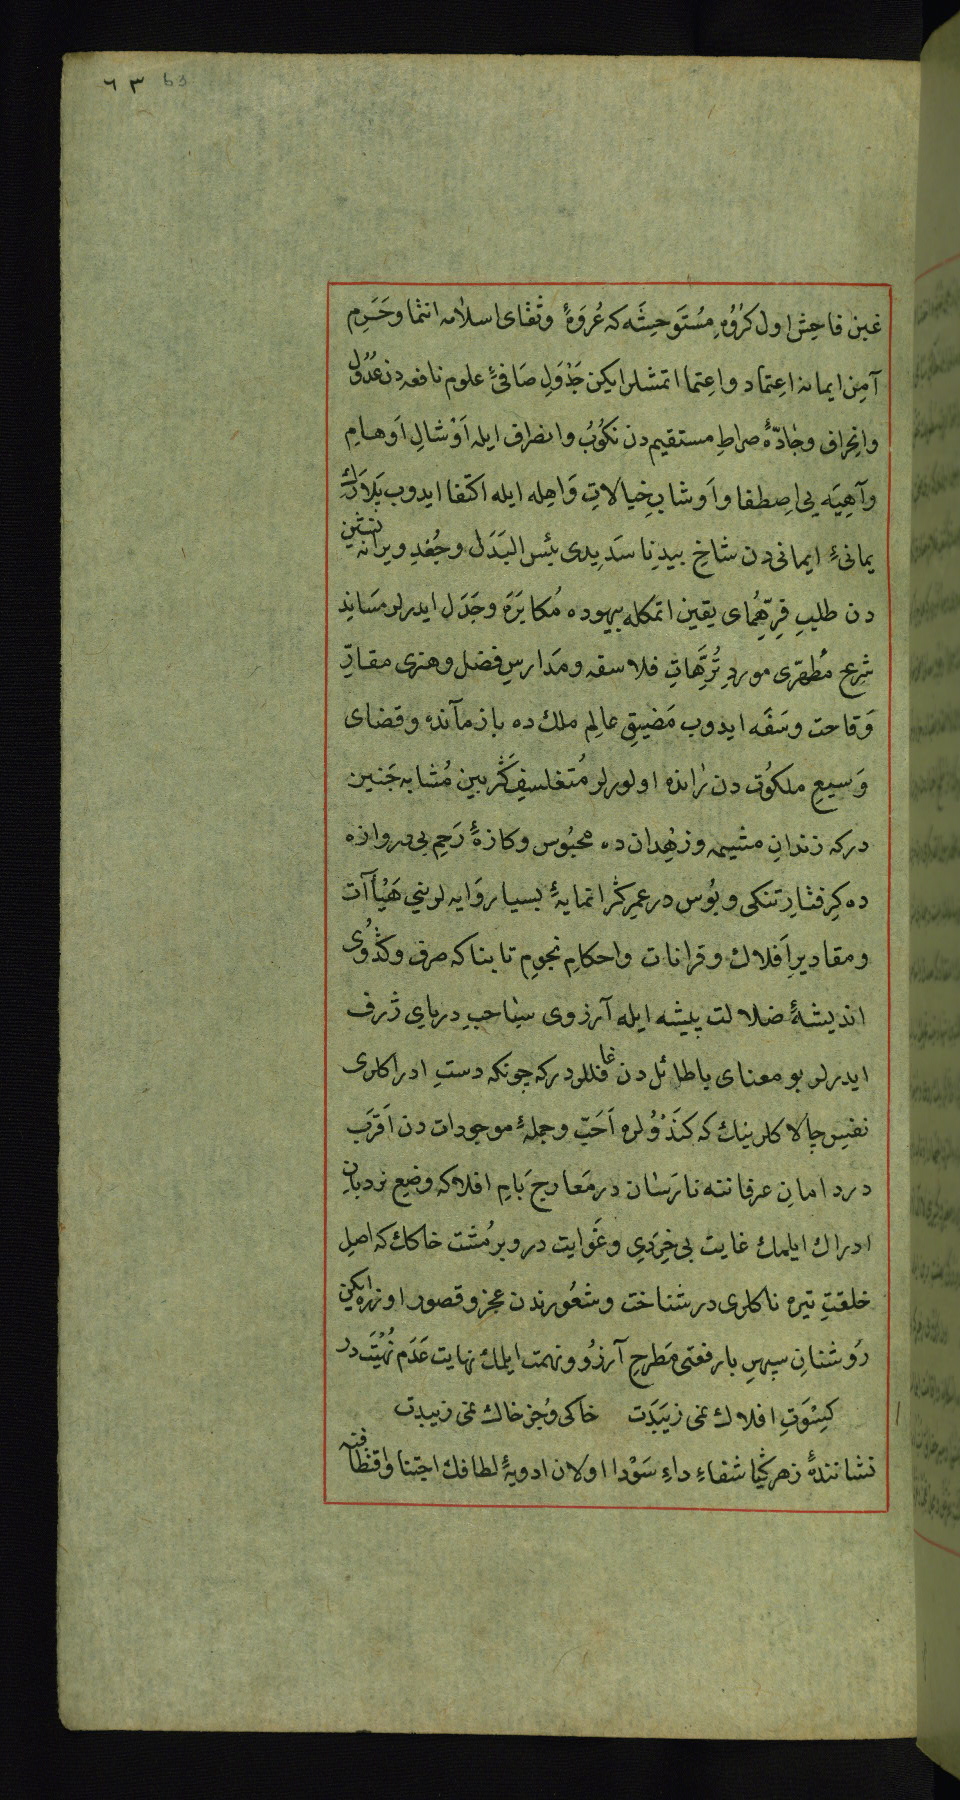 ٦٣ 63
غبن فاحش اول كروه مستوحشه كه عروهٔ وثقای اسلامه انتما وحرم
آمن ايمانه اعتماد واعتما اتمشلر ايكن جدول صافیٔ علوم نافعه دن عدول
وانحراف وجادهٔ صراط مستقيم دن نكوب وانصراف ايله اوشال اوهام
واهيه يی اصطفا واوشاب خيالات واهله ايله اكتفا ايدوب بلارك
يمانیٔ ايمانی دن شاخ بيدنا سديدی بئس البدل وجغد ويرانه نشين
دن طلب فر همای يقين اتمكله بيهوده مكابره وجدل ايدرلر مساند
شرع مطهری مورد ترهات فلاسفه ومدارس فضل وهنری مقار
وقاحت وسفه ايدوب مضيق عالم ملك ده باز مآنده وفضای
وسيع ملكوتی دن رانده اولورلر متفلسف كژ بين مشابه جنين
دركه زندان مشيمه وزهدان ده محبوس وكازهٔ رحم بی دروازه
ده كرفتار تنكی وبوس در عمر كژ انمايهٔ بسيار وايه لرينی هيأآت
ومقادير افلاك وقرانات واحكام نجوم تابناكه صرف وكدوی
انديشهٔ ضلالت پيشه ايله آرزوی سباحت دريای ژرف
ايدرلر بو معنای باطائل دن غافللردركه چونكه دست ادراكلری
نفس چالاكلرينك كه كندولره احب وجملهٔ موجودات دن اقرب
در دامان عرفاننه نارسان در معارج بام افلاكه وضع نردبان
ادراك ايلمك غايت بی خردی وغوايت در وبر مشت خاكك كه اصل
خلقت تيره ناكلری در شناخت وشعورندن عجز وقصور اوزره ايكن
روشنان سپهر بارفعتی مطرح آرزو ونهمت ايلمك نهايت عدم نهيت در
كسوت افلاك نمی زيبدت خاكی وجز خاك نمی زيبدت
نشانندهٔ زهر كيا شفاء داء سودا اولان ادويهٔ لطافك اجتنا واقتطافنه